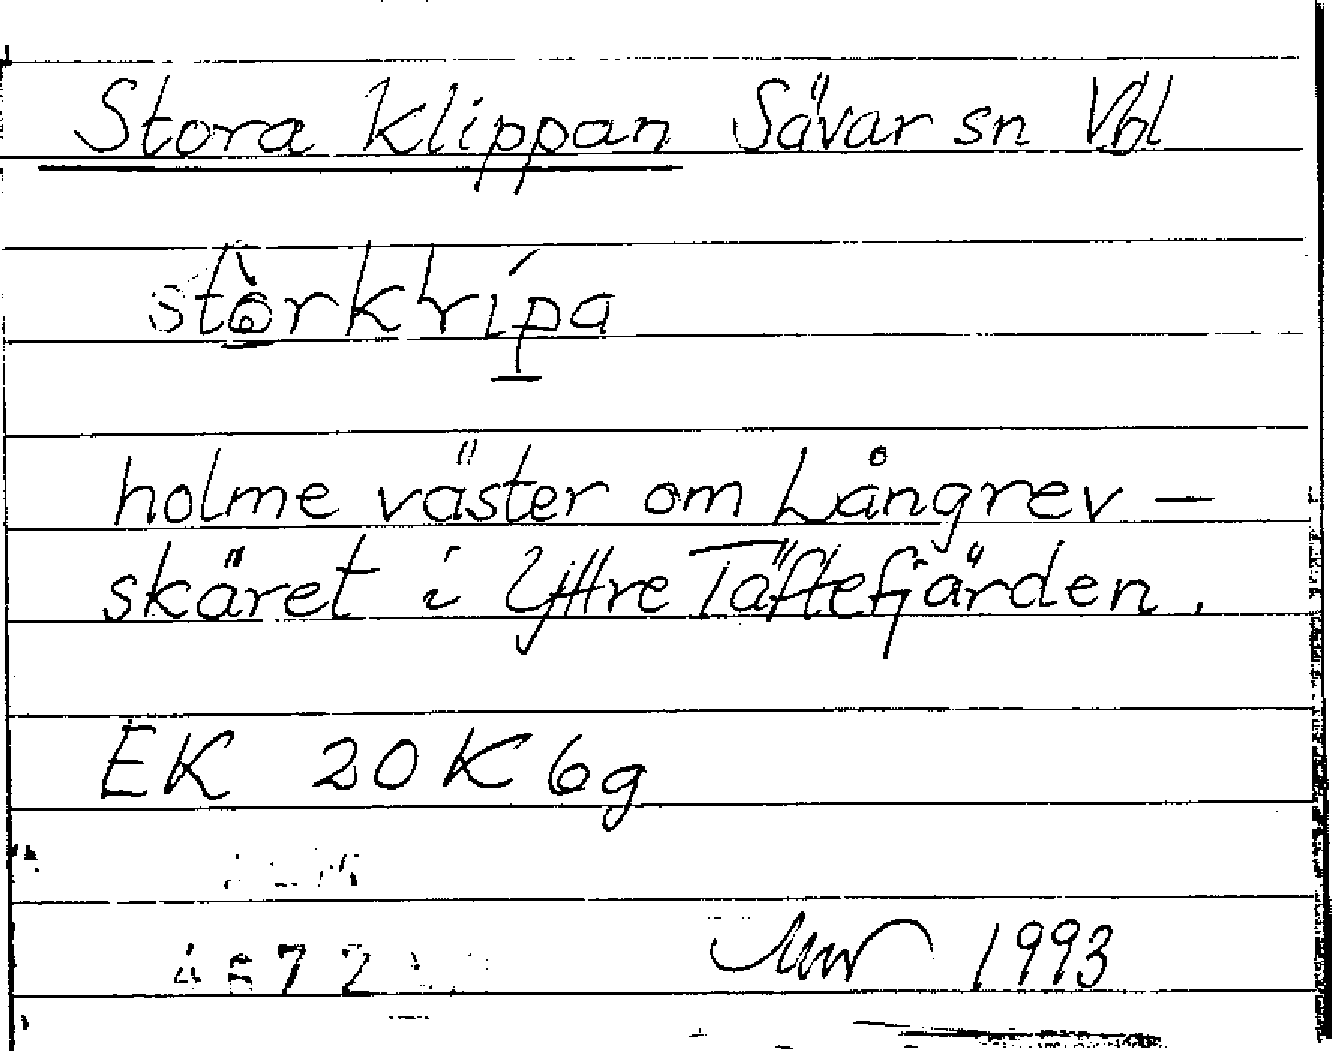 Stora Klippan Sävar sn Vbl
stòrklípa
holme väster om Långrev-
skäret i Yttre Täftefjärden.
EK 20K 6g
1993